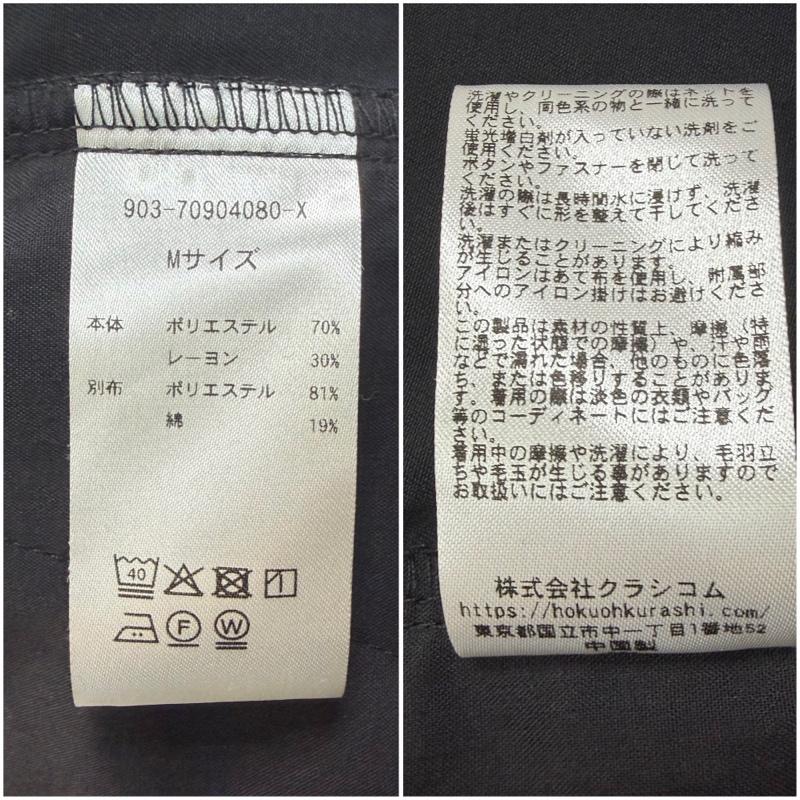 903-70904080-X
Mサイズ
本体 ポリエステル 70%
レーヨン 30%
別布 ポリエステル 81%
綿 19%
40
F
W
洗濯やクリーニングの際はネットを
使用し、同色系の物と一緒に洗って
ください。
蛍光増白剤が入っていない洗剤をご
使用ください。
ボタンやファスナーを閉じて洗って
ください。
洗濯の際は長時間水に浸けず、洗濯
後はすぐに形を整えて干してくださ
い。
洗濯またはクリーニングにより縮み
が生じることがあります。
アイロンはあて布を使用し、附属部
分へのアイロン掛けはお避けくださ
い。
この製品は素材の性質上、摩擦（特
に湿った状態での摩擦）や、汗や雨
などで濡れた場合、他のものに色落
ち、または色移りすることがありま
す。着用の際は淡色の衣類やバッグ
等のコーディネートにはご注意くだ
さい。
着用中の摩擦や洗濯により、毛羽立
ちや毛玉が生じる事がありますので
お取扱いにはご注意ください。
株式会社クラシコム
https://hokuohkurashi.com/
東京都国立市中一丁目1番地52
中国製